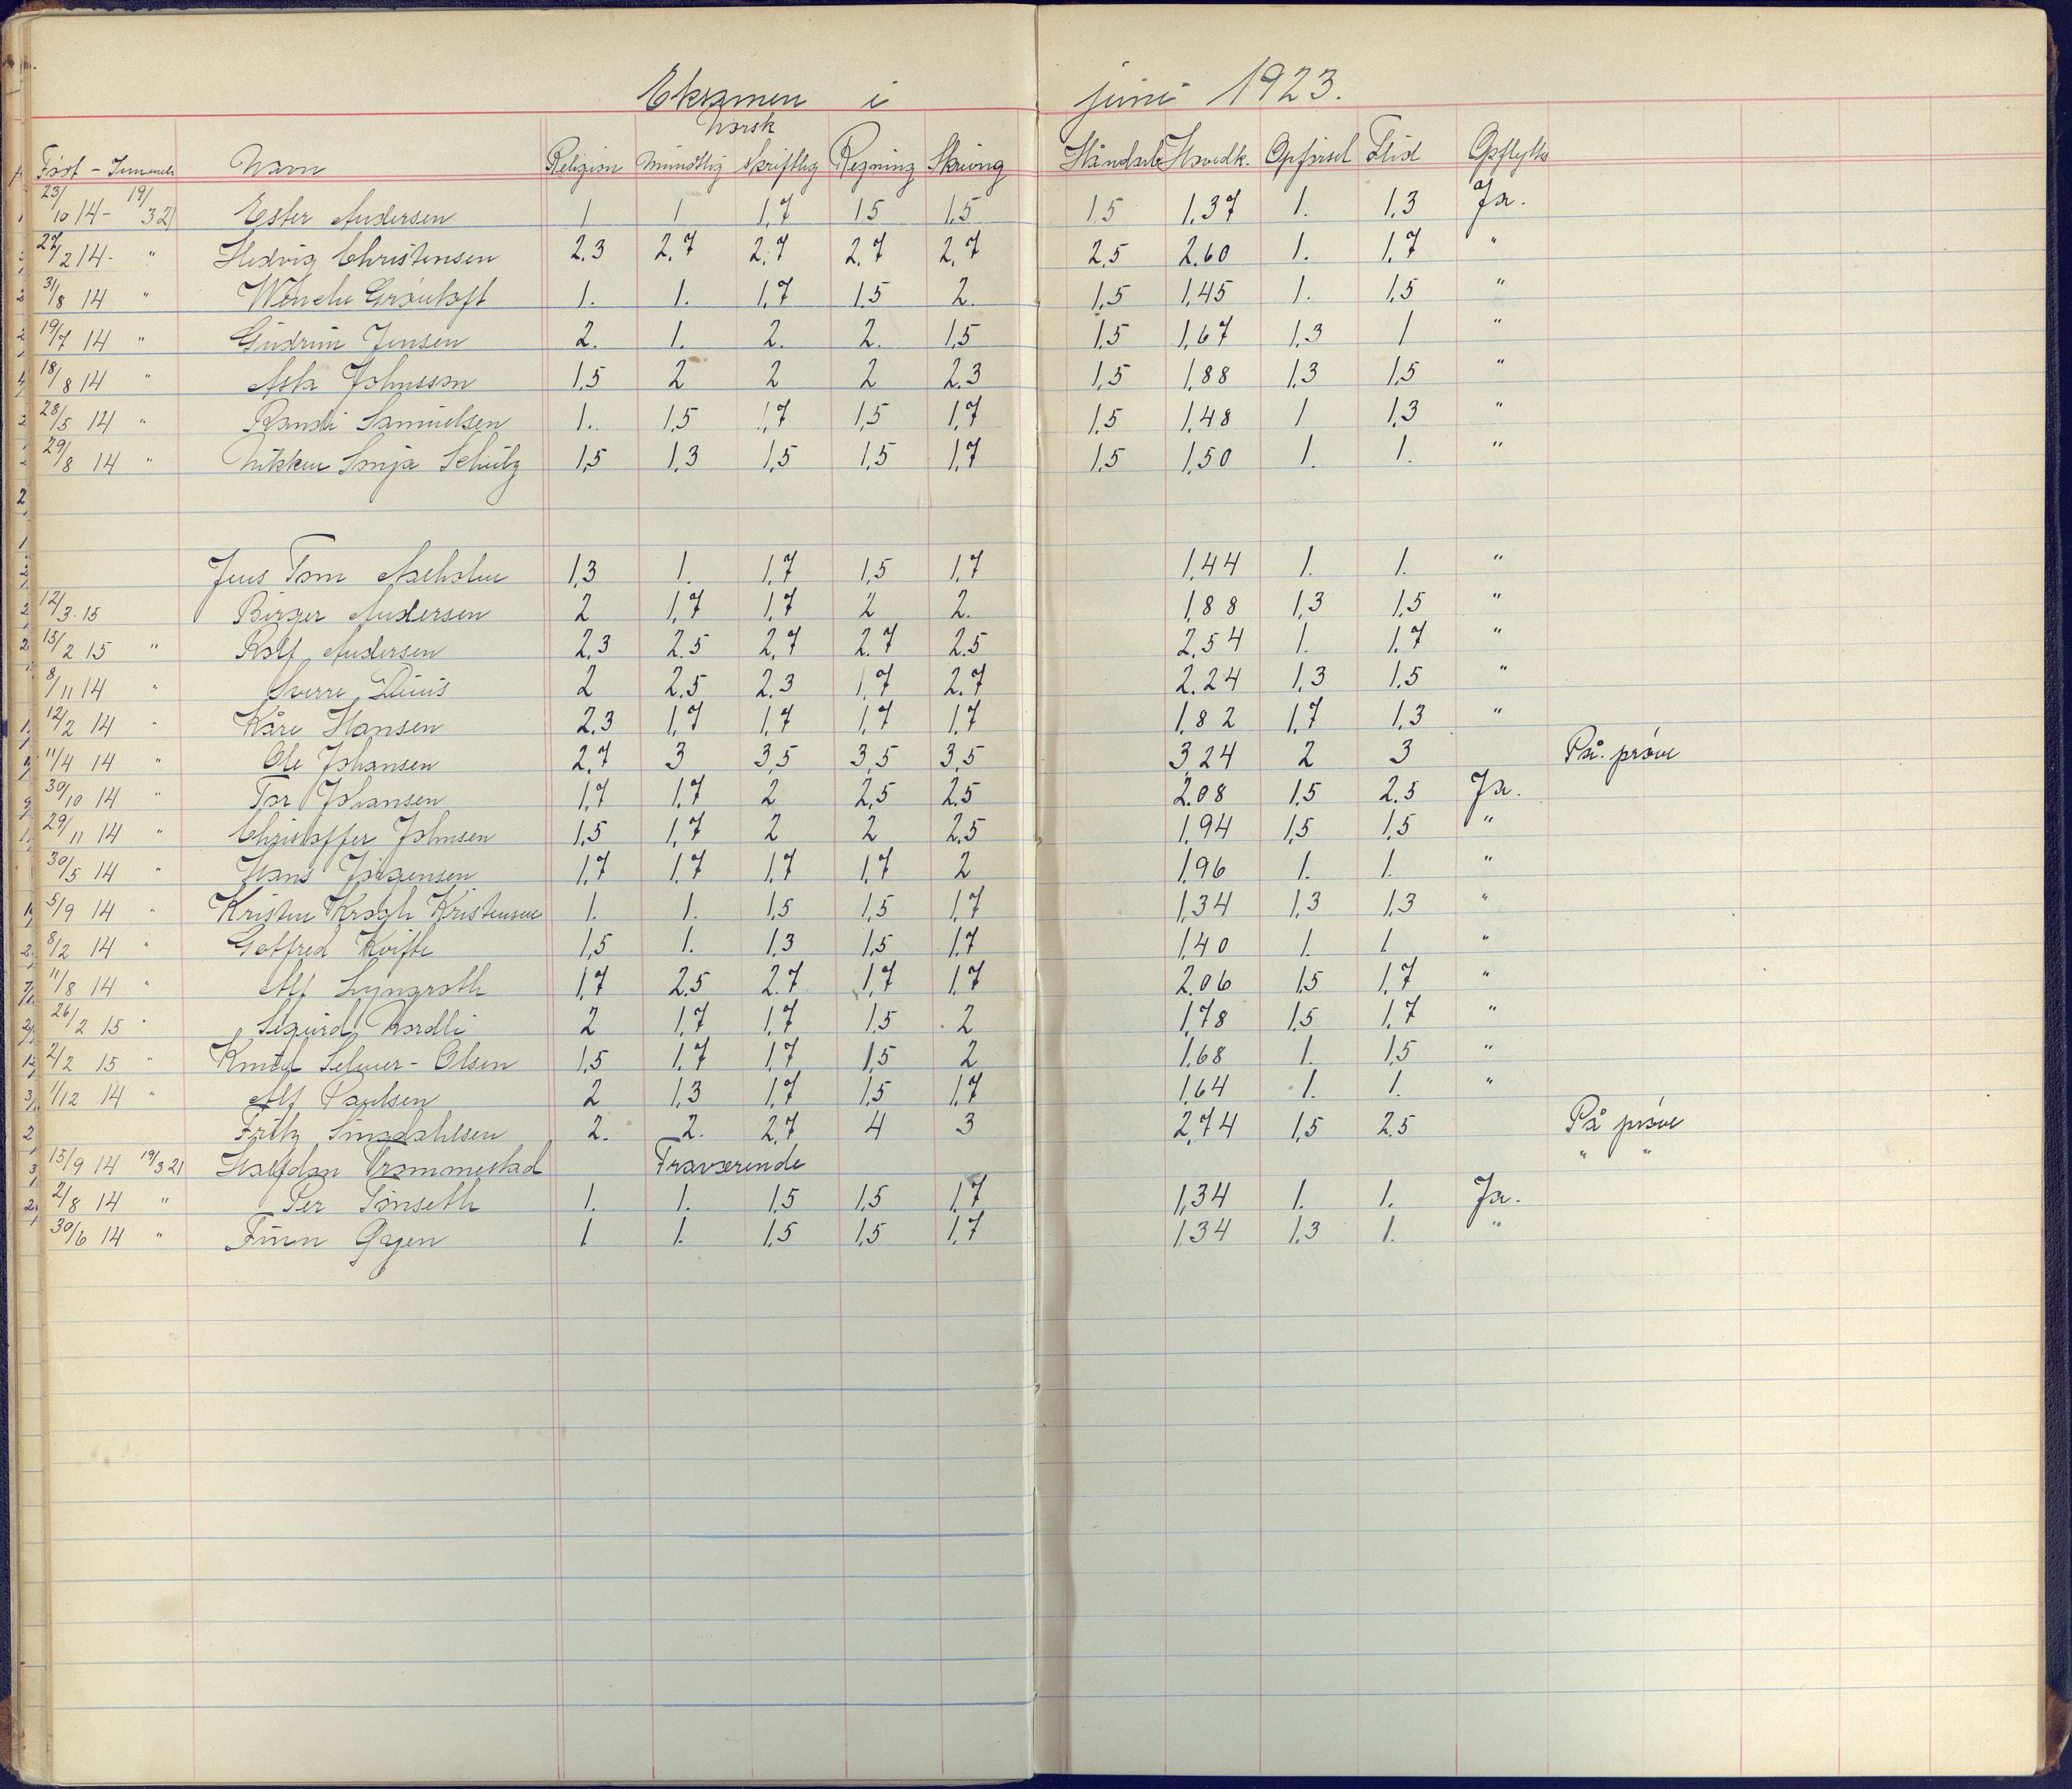 Eksamen i juni 1923.
Norsk
Født - Innmeldt Navn Religion Mundtlig Skriftlig Regning Skrivng Håndarb. Hovedk. Opførsel Flid Opflyttes
23/10 14 - 19/3 21 Ester Andersen 1 1 1,7 1,5 1,5 1,5 1,37 1. 1,3 Ja.
27/2 14 - " Hedvig Christensen 2.3 2,7 2,7 2,7 2,7 2,5 2,60 1. 1,7 "
31/8 14 " Wenche Grøntoft 1. 1. 1,7 1,5 2. 1,5 1,45 1. 1,5 "
19/7 14 " Gudrun Jensen 2. 1. 2. 2. 1,5 1,5 1,67 1,3 1 "
18/8 14 " Asta Johnsson 1,5 2 2 2 2.3 1,5 1,88 1,3 1,5 "
28/5 14 " Randi Samuelsen 1. 1,5 1,7 1,5 1,7 1,5 1,48 1 1,3 "
29/8 14 " Nikken Sonja Schulz 1,5 1,3 1,5 1,5 1,7 1,5 1,50 1. 1. "
Jens Tom 1,3 1. 1,7 1,5 1,7 1,44 1. 1. "
12/3 15 Birger Andersen 2 1,7 1,7 2 2. 1,88 1,3 1,5 "
15/2 15 " Rolf Andersen 2,3 2.5 2,7 2.7 2.5 2,54 1. 1.7 "
8/11 14 " Sverre Duus 2 2.5 2.3 1,7 2.7 2.24 1,3 1.5 "
12/2 14 " Kåre Hansen 2.3 1,7 1,7 1,7 1,7 1,82 1,7 1,3 "
11/4 14 " Ole Johansen 2,7 3 3,5 3,5 3,5 3,24 2 3 På prøve
30/10 14 " Tor Johansen 1,7 1,7 2 2,5 2.5 2.08 1.5 2.5 Ja.
29/11 14 " Christoffer Johnsen 1,5 1,7 2 2 2,5 1,94 1,5 1,5 "
30/5 14 " Hans Jørgensen 1,7 1,7 1,7 1,7 2 1,96 1. 1. "
5/9 14 " Kristen Krogh Kristensen 1. 1. 1,5 1,5 1,7 1,34 1,3 1,3 "
8/12 14 " Gotfred Kvifte 1,5 1. 1,3 1,5 1,7 1,40 1. 1 "
11/8 14 " Alf Lyngroth 1,7 2.5 2.7 1,7 1,7 2.06 1,5 1,7 "
26/2 15 " Sigurd Nordli 2 1,7 1,7 1.5 2 1,78 1,5 1,7 "
2/2 15 " Knut Selmer-Olsen 1,5 1,7 1,7 1,5 2 1,68 1. 1,5 "
1/12 14 " Alf Paulsen 2 1,3 1,7 1,5 1,7 1,64 1. 1. "
Fritz Smedahlsen 2. 2. 2,7 4 3 2,74 1,5 2.5 På prøve
15/9 14 19/3 21 Halfdan Trommestad Fraværende " "
2/8 14 " Per Tønseth 1. 1. 1,5 1,5 1,7 1,34 1. 1. Ja.
30/6 14 " Finn Øgen 1 1. 1,5 1,5 1,7 1,34 1,3 1. "